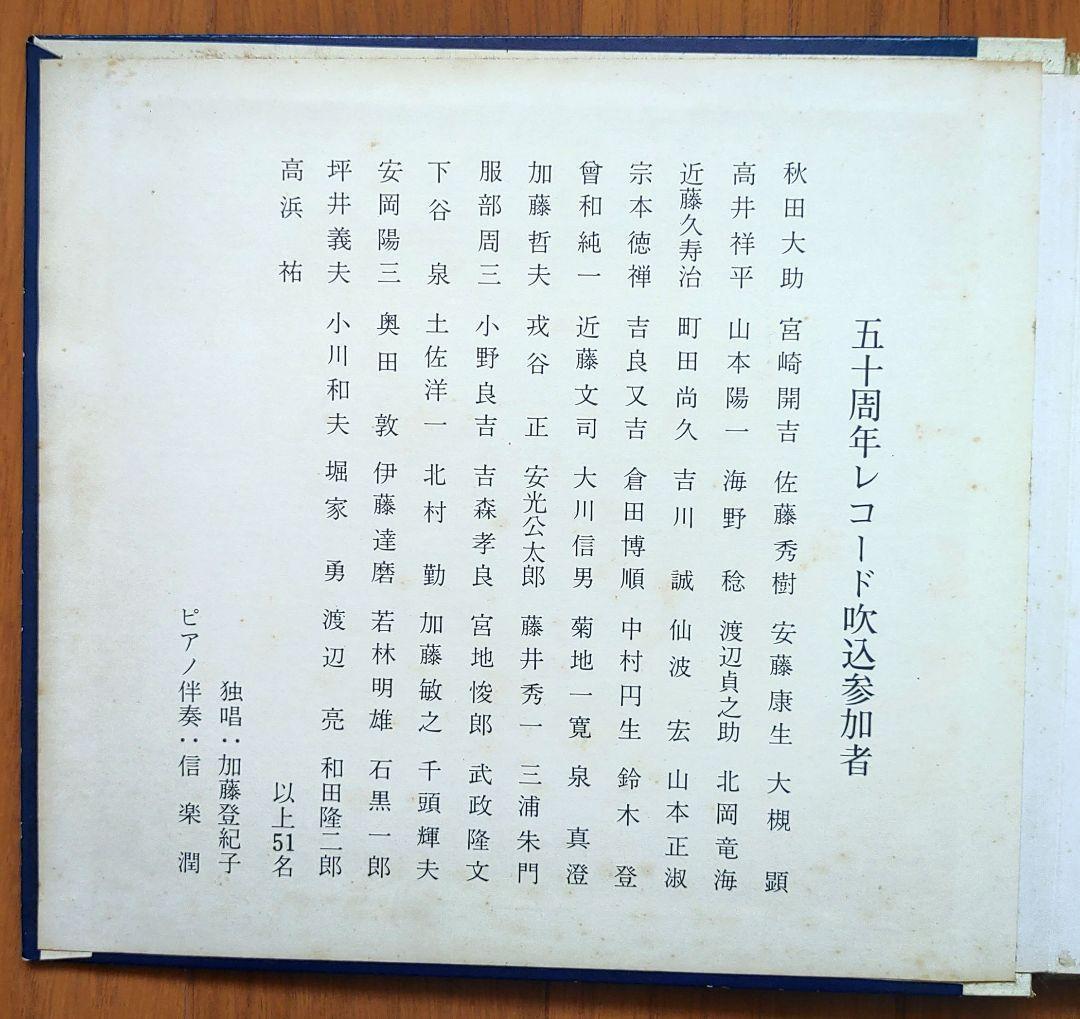 五十周年レコード吹込参加者
秋田大助 宮崎開吉 佐藤秀樹 安藤康生 大槻顕
高井祥平 山本陽一 海野稔 渡辺貞之助 北岡竜海
近藤久寿治 町田尚久 吉川誠 仙波宏 山本正淑
宗本徳禅 吉良又吉 倉田博順 中村円生 鈴木登
曾和純一 近藤文司 大川信男 菊地一寛 泉真澄
加藤哲夫 戎谷正 安光公太郎 藤井秀一 三浦朱門
服部周三 小野良吉 吉森孝良 宮地悛郎 武政隆文
下谷泉 土佐洋一 北村勤 加藤敏之 千頭輝夫
安岡陽三 奥田敦 伊藤達磨 若林明雄 石黒一郎
坪井義夫 小川和夫 堀家勇 渡辺亮 和田隆二郎
高浜祐
以上51名
独唱：加藤登紀子
ピアノ伴奏：信楽潤